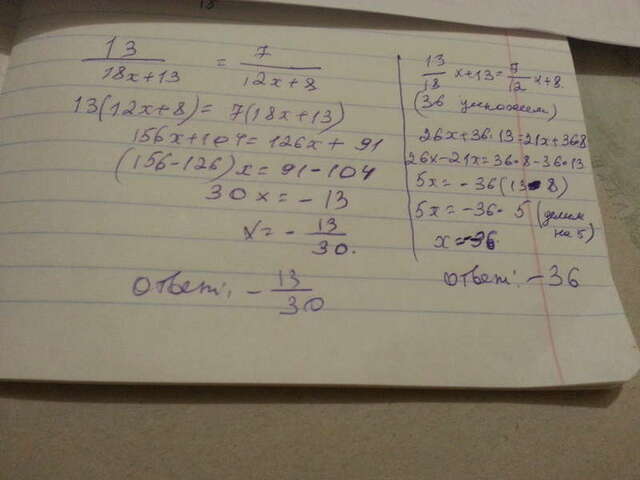 13/(18x+13) = 7/(12x+8)
13(12x+8) = 7(18x+13)
156x+104 = 126x+91
(156-126)x = 91-104
30x = -13
x = -13/30.
Ответ: -13/30
13/18 x+13 = 7/12 x+8
(36 умножаем)
26x+36·13=21x+36·8
26x-21x=36·8-36·13
5x=-36(13-8)
5x=-36·5 (делим на 5)
x=-36.
Ответ: -36